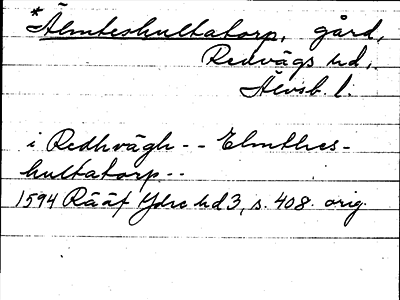 *Älmteshultatorp, gård,
Redvägs hd,
Älvsb. l.
i Redhvägh -- Elmthes-
hultatorp --
1594 Rääf Ydre hd 3, s. 408. orig.